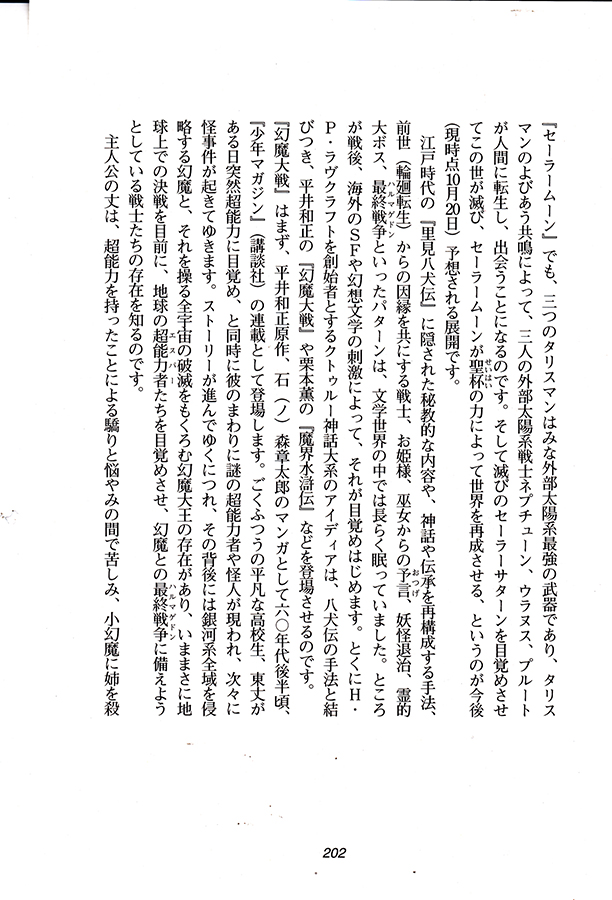 『セーラームーン』でも、三つのタリスマンはみな外部太陽系最強の武器であり、タリス
マンのよびあう共鳴によって、三人の外部太陽系戦士ネプチューン、ウラヌス、プルート
が人間に転生し、出会うことになるのです。そして滅びのセーラーサターンを目覚めさせ
てこの世が滅び、セーラームーンが聖杯の力によって世界を再成させる、というのが今後
せいはい
(現時点10月20日)予想される展開です。
江戸時代の『里見八犬伝』に隠された秘教的な内容や、神話や伝承を再構成する手法、
前世(輪廻転生)からの因縁を共にする戦士、お姫様、巫女からの予言、妖怪退治、霊的
おつげ
大ボス、最終戦争といったパターンは、文学世界の中では長らく眠っていました。ところ
ハルマゲドン
が戦後、海外のSFや幻想文学の刺激によって、それが目覚めはじめます。とくにH・
P・ラヴクラフトを創始者とするクトゥルー神話大系のアイディアは、八犬伝の手法と結
びつき、平井和正の『幻魔大戦』や栗本薫の『魔界水滸伝』などを登場させるのです。
『幻魔大戦』はまず、平井和正原作、石(ノ)森章太郎のマンガとして六〇年代後半頃、
『少年マガジン』(講談社)の連載として登場します。ごくふつうの平凡な高校生、東丈が
ある日突然超能力に目覚め、と同時に彼のまわりに謎の超能力者や怪人が現われ、次々に
怪事件が起きてゆきます。ストーリーが進んでゆくにつれ、その背後には銀河系全域を侵
略する幻魔と、それを操る全宇宙の破滅をもくろむ幻魔大王の存在があり、いままさに地
球上での決戦を目前に、地球の超能力者たちを目覚めさせ、幻魔との最終戦争に備えよう
エスパー
ハルマゲドン
としている戦士たちの存在を知るのです。
主人公の丈は、超能力を持ったことによる驕りと悩やみの間で苦しみ、小幻魔に姉を殺
202